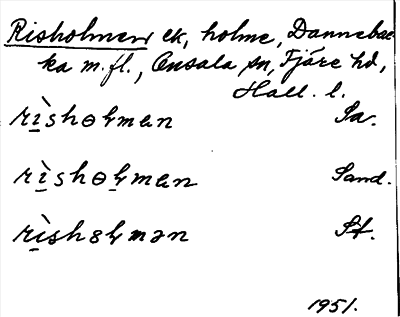 Risholmen ek, holme, Dannebac
ka m.fl., Onsala sn, Fjäre hd,
Hall. l.
rìshɵḷmen Sa.
rìshɵḷmen Sand.
rìshɞḷmən St.
1951.